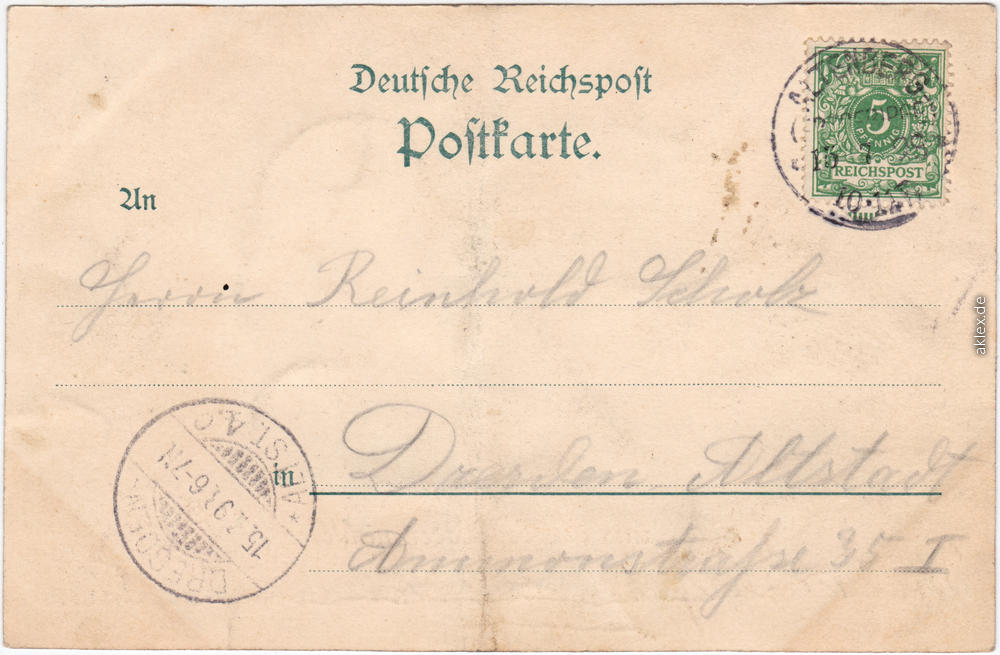 Deutsche Reichspost
Postkarte.
5
PFENNIG
REICHSPOST
An
Herrn Reinhold Scholz
in Dresden Altstadt
Ammonstraße 35 I
DRESDEN
ALTST. A.
15.7.9 6-7N
aklex.de